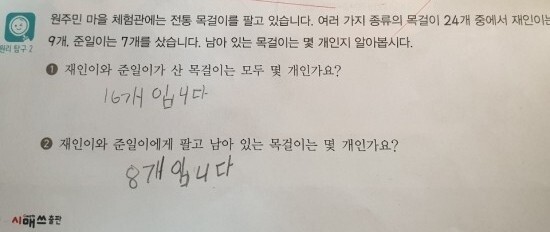 원주민 마을 체험관에는 전통 목걸이를 팔고 있습니다. 여러 가지 종류의 목걸이 24개 중에서 재인이는
원리 탐구 2
9개, 준일이는 7개를 샀습니다. 남아 있는 목걸이는 몇 개인지 알아봅시다.
❶ 재인이와 준일이가 산 목걸이는 모두 몇 개인가요?
16개 입니다
❷ 재인이와 준일이에게 팔고 남아 있는 목걸이는 몇 개인가요?
8개입니다
시매쓰출판